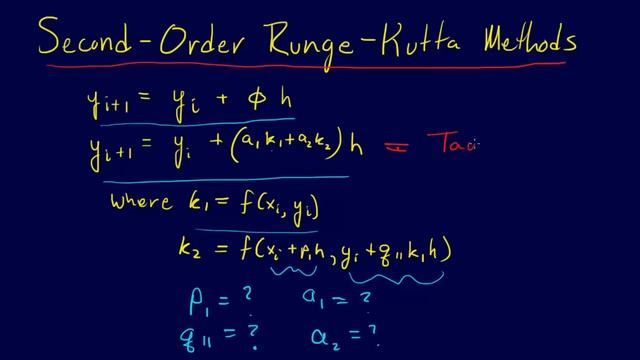 Second-Order Runge-Kutta Methods
y_{i+1} = y_i + ϕ h
y_{i+1} = y_i + (a_1 k_1 + a_2 k_2) h =
where k_1 = f(x_i, y_i)
k_2 = f(x_i + p_1 h, y_i + q_{11} k_1 h)
p_1 = ? a_1 = ?
q_{11} = ? a_2 = ?